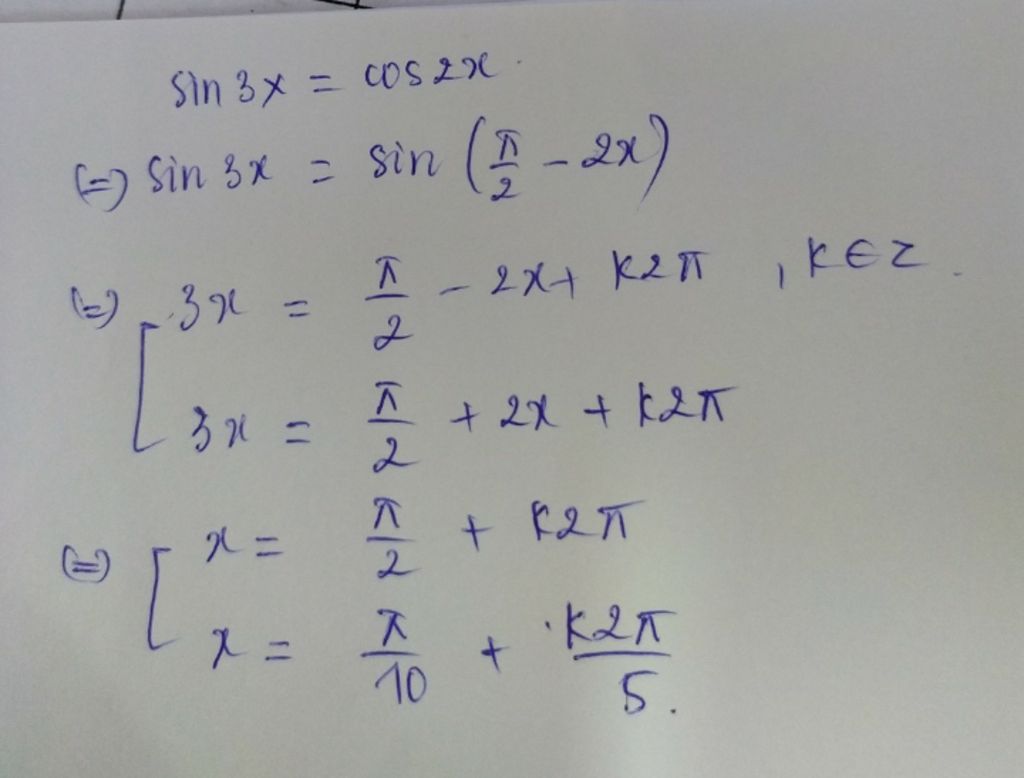 sin 3x = cos 2x
(=) sin 3x = sin (π/2 - 2x)
(=) [ 3x = π/2 - 2x + k2π , k ∈ Z.
3x = π/2 + 2x + k2π
(=) [ x = π/2 + k2π
x = π/10 + k2π/5.